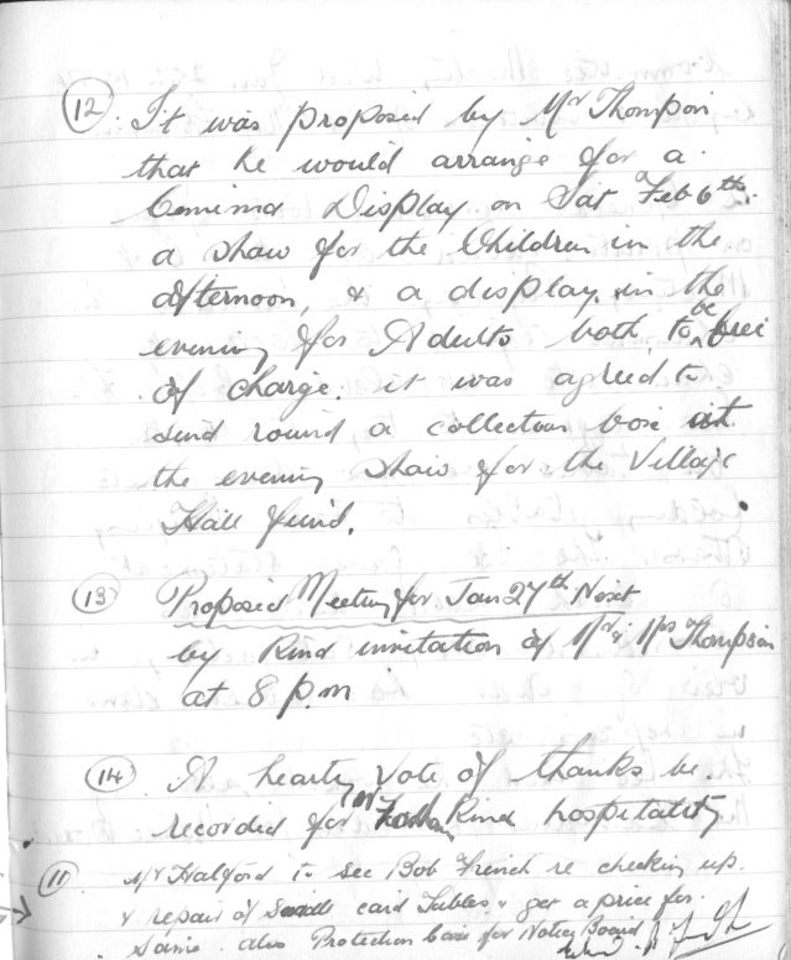 (12). It was proposed by Mr Thompson
that he would arrange for a
Cinema Display on Sat Feb 6th.
a show for the Children in the
afternoon, & a display in the
evening for Adults both to be free
of charge. it was agreed to
send round a collection box at
the evening show for the Village
Hall fund.
(13) Proposed Meeting for Jan 27th Next
by Kind invitation of Mr & Mrs Thompson
at 8 p.m
(14) A hearty vote of thanks be
recorded for Kind hospitality
(11) Mr Halford to see Bob French re checking up.
& repair of Small card Tables & get a price for
Same. also Protection for Notice Board